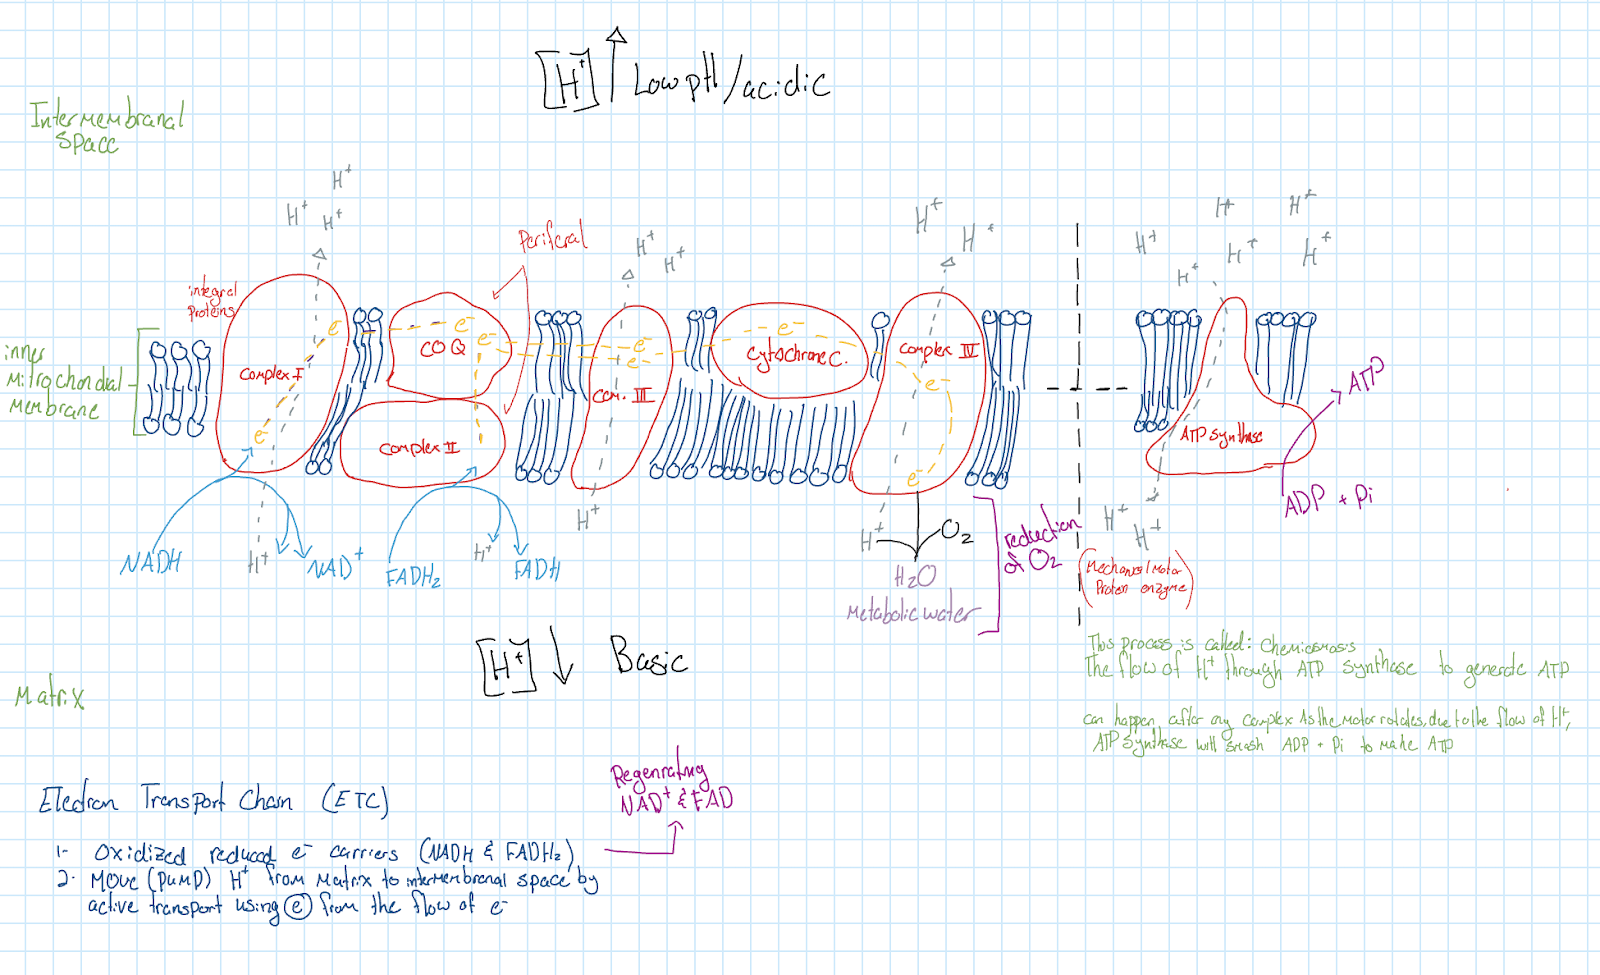 [H⁺] Low pH/acidic
Intermembranal
space
H⁺
H⁺ H⁺
H⁺
H⁺
H⁺
H⁺
H⁺
H⁺
H⁺
H⁺
H⁺
H⁺
H⁺
Periferal
integral
Proteins
inner
Mitrochondial
Membrane
e⁻
e⁻
e⁻
e⁻
e⁻
e⁻
CO Q
Complex I
Com. III
Cytochrome C.
Complex IV
e⁻
e⁻
e⁻
Complex II
ATP synthase
ATP
ADP + Pi
NADH
H⁺
NAD⁺
FADH₂
H⁺
FADH
H⁺
H⁺
O₂
H₂O
Metabolic water
reduction
of O₂
H⁺
H⁺
(Mechanical Motor
Protein enzyme)
[H⁺] Basic
Matrix
This process is called: Chemiosmosis
The flow of H⁺ through ATP synthase to generate ATP
can happen after any complex As the Motor rotates, due to the flow of H⁺,
ATP synthase will smash ADP + Pi to make ATP
Regenrating
NAD⁺ & FAD
Electron Transport Chain (ETC)
1- Oxidized reduced e⁻ carriers (NADH & FADH₂)
2- Move (pump) H⁺ from Matrix to intermembranal space by
active transport using ⓔ from the flow of e⁻